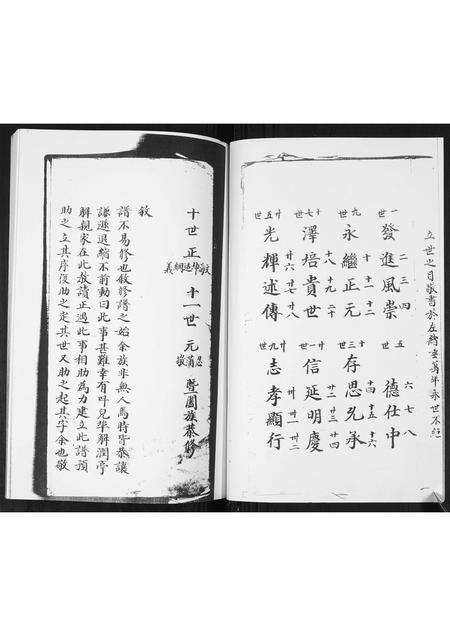 立世之目敬書於左約云萬年永世不絕
一世 二 三 四 五世 六 七 八
發進風崇 德仕中
九世 十 十一 十二 十三世 十四 十五 十六
永繼正元 存思兄承
十七世 十八 十九 二十 廿一世 廿二 廿三 廿四
澤培貴世 信延明慶
廿五世 廿六 廿七 廿八 廿九世 卅 卅一 卅二
光輝述傳 志孝顯行
十世正 義 十一世元 敬 暨闔族恭修
敘
譜不易修也敘修譜之始余族非無人焉時皆恭讓
謙遜退縮不前動曰此事甚難幸有呼兒華解潤亭
解親家在此教讀正遇此事相助為力建立此譜預
助之立其序復助之定其世又助之起其字余也敬